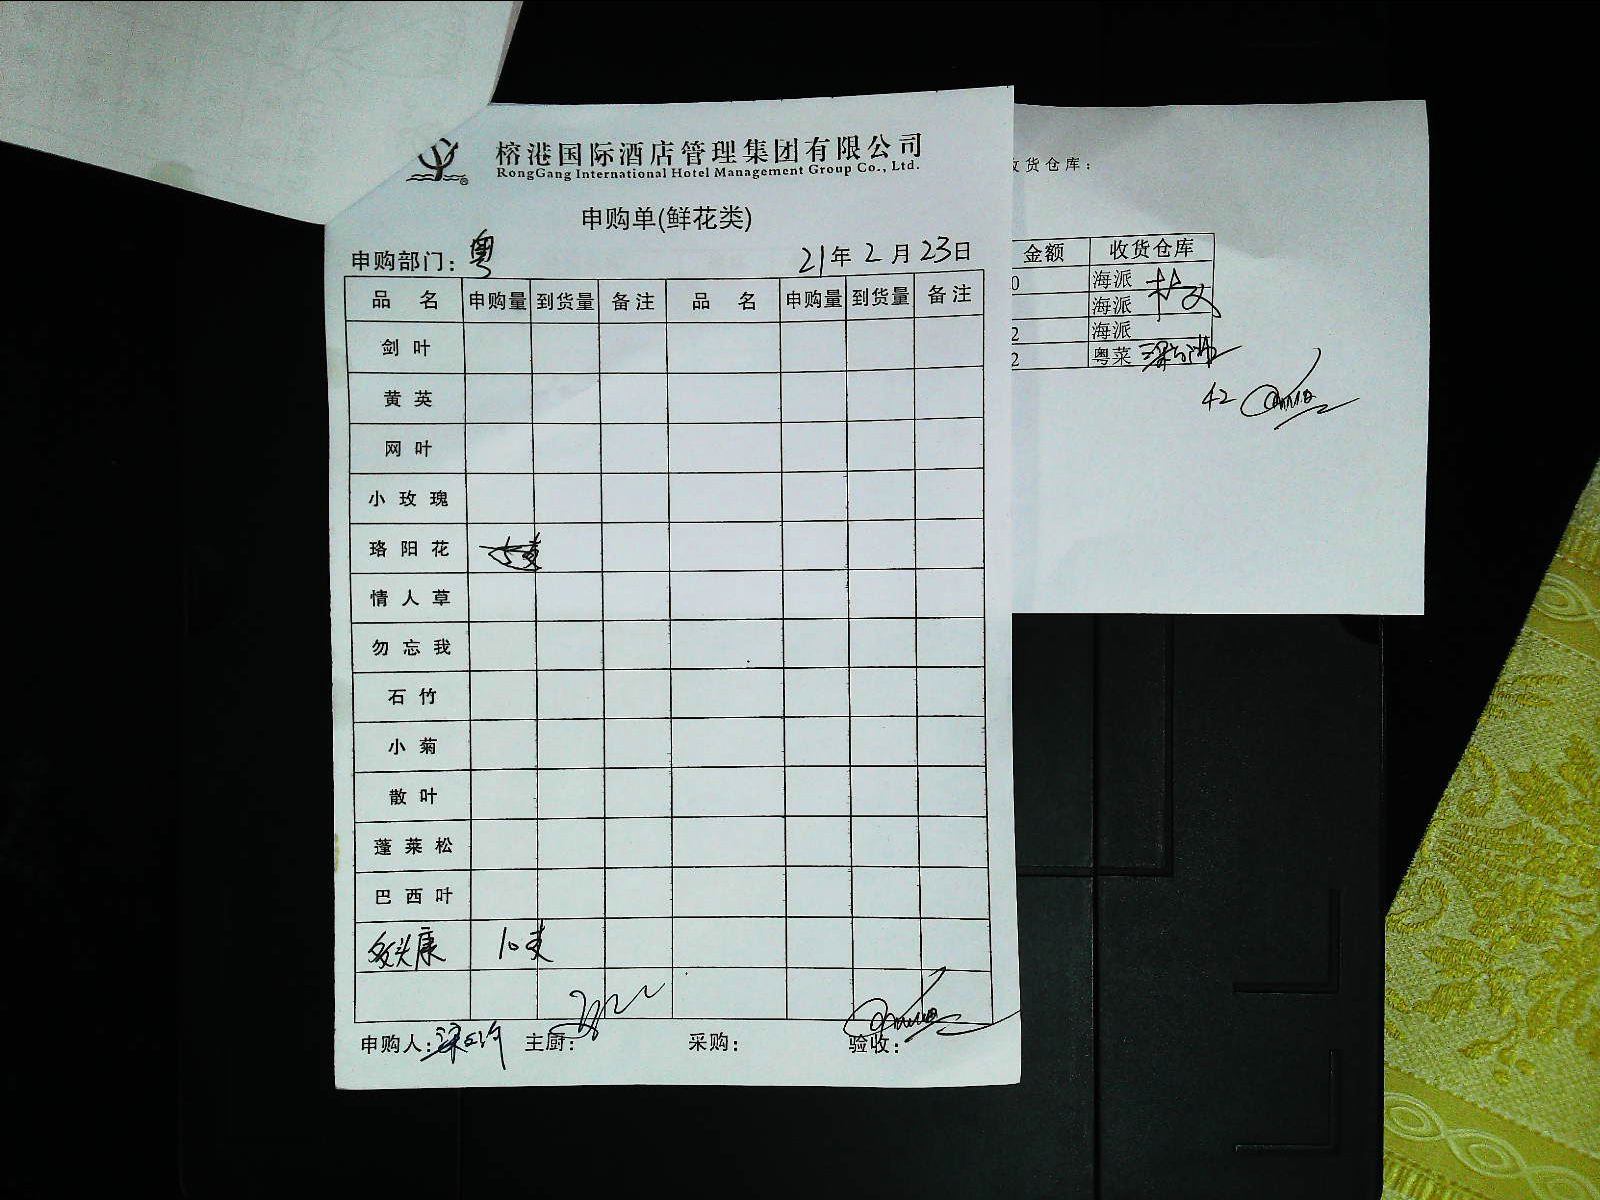 榕港国际酒店管理集团有限公司
RongGang International Hotel Management Group Co., Ltd.
申购单(鲜花类)
申购部门：粤 21年2月23日
品名 申购量 到货量 备注 品名 申购量 到货量 备注
剑叶
黄英
网叶
小玫瑰
珞阳花
情人草
勿忘我
石竹
小菊
散叶
蓬莱松
巴西叶
多头康 10支
申购人： 主厨： 采购： 验收：
收货仓库：
金额 收货仓库
0 海派
海派
2 海派
2 粤菜
42